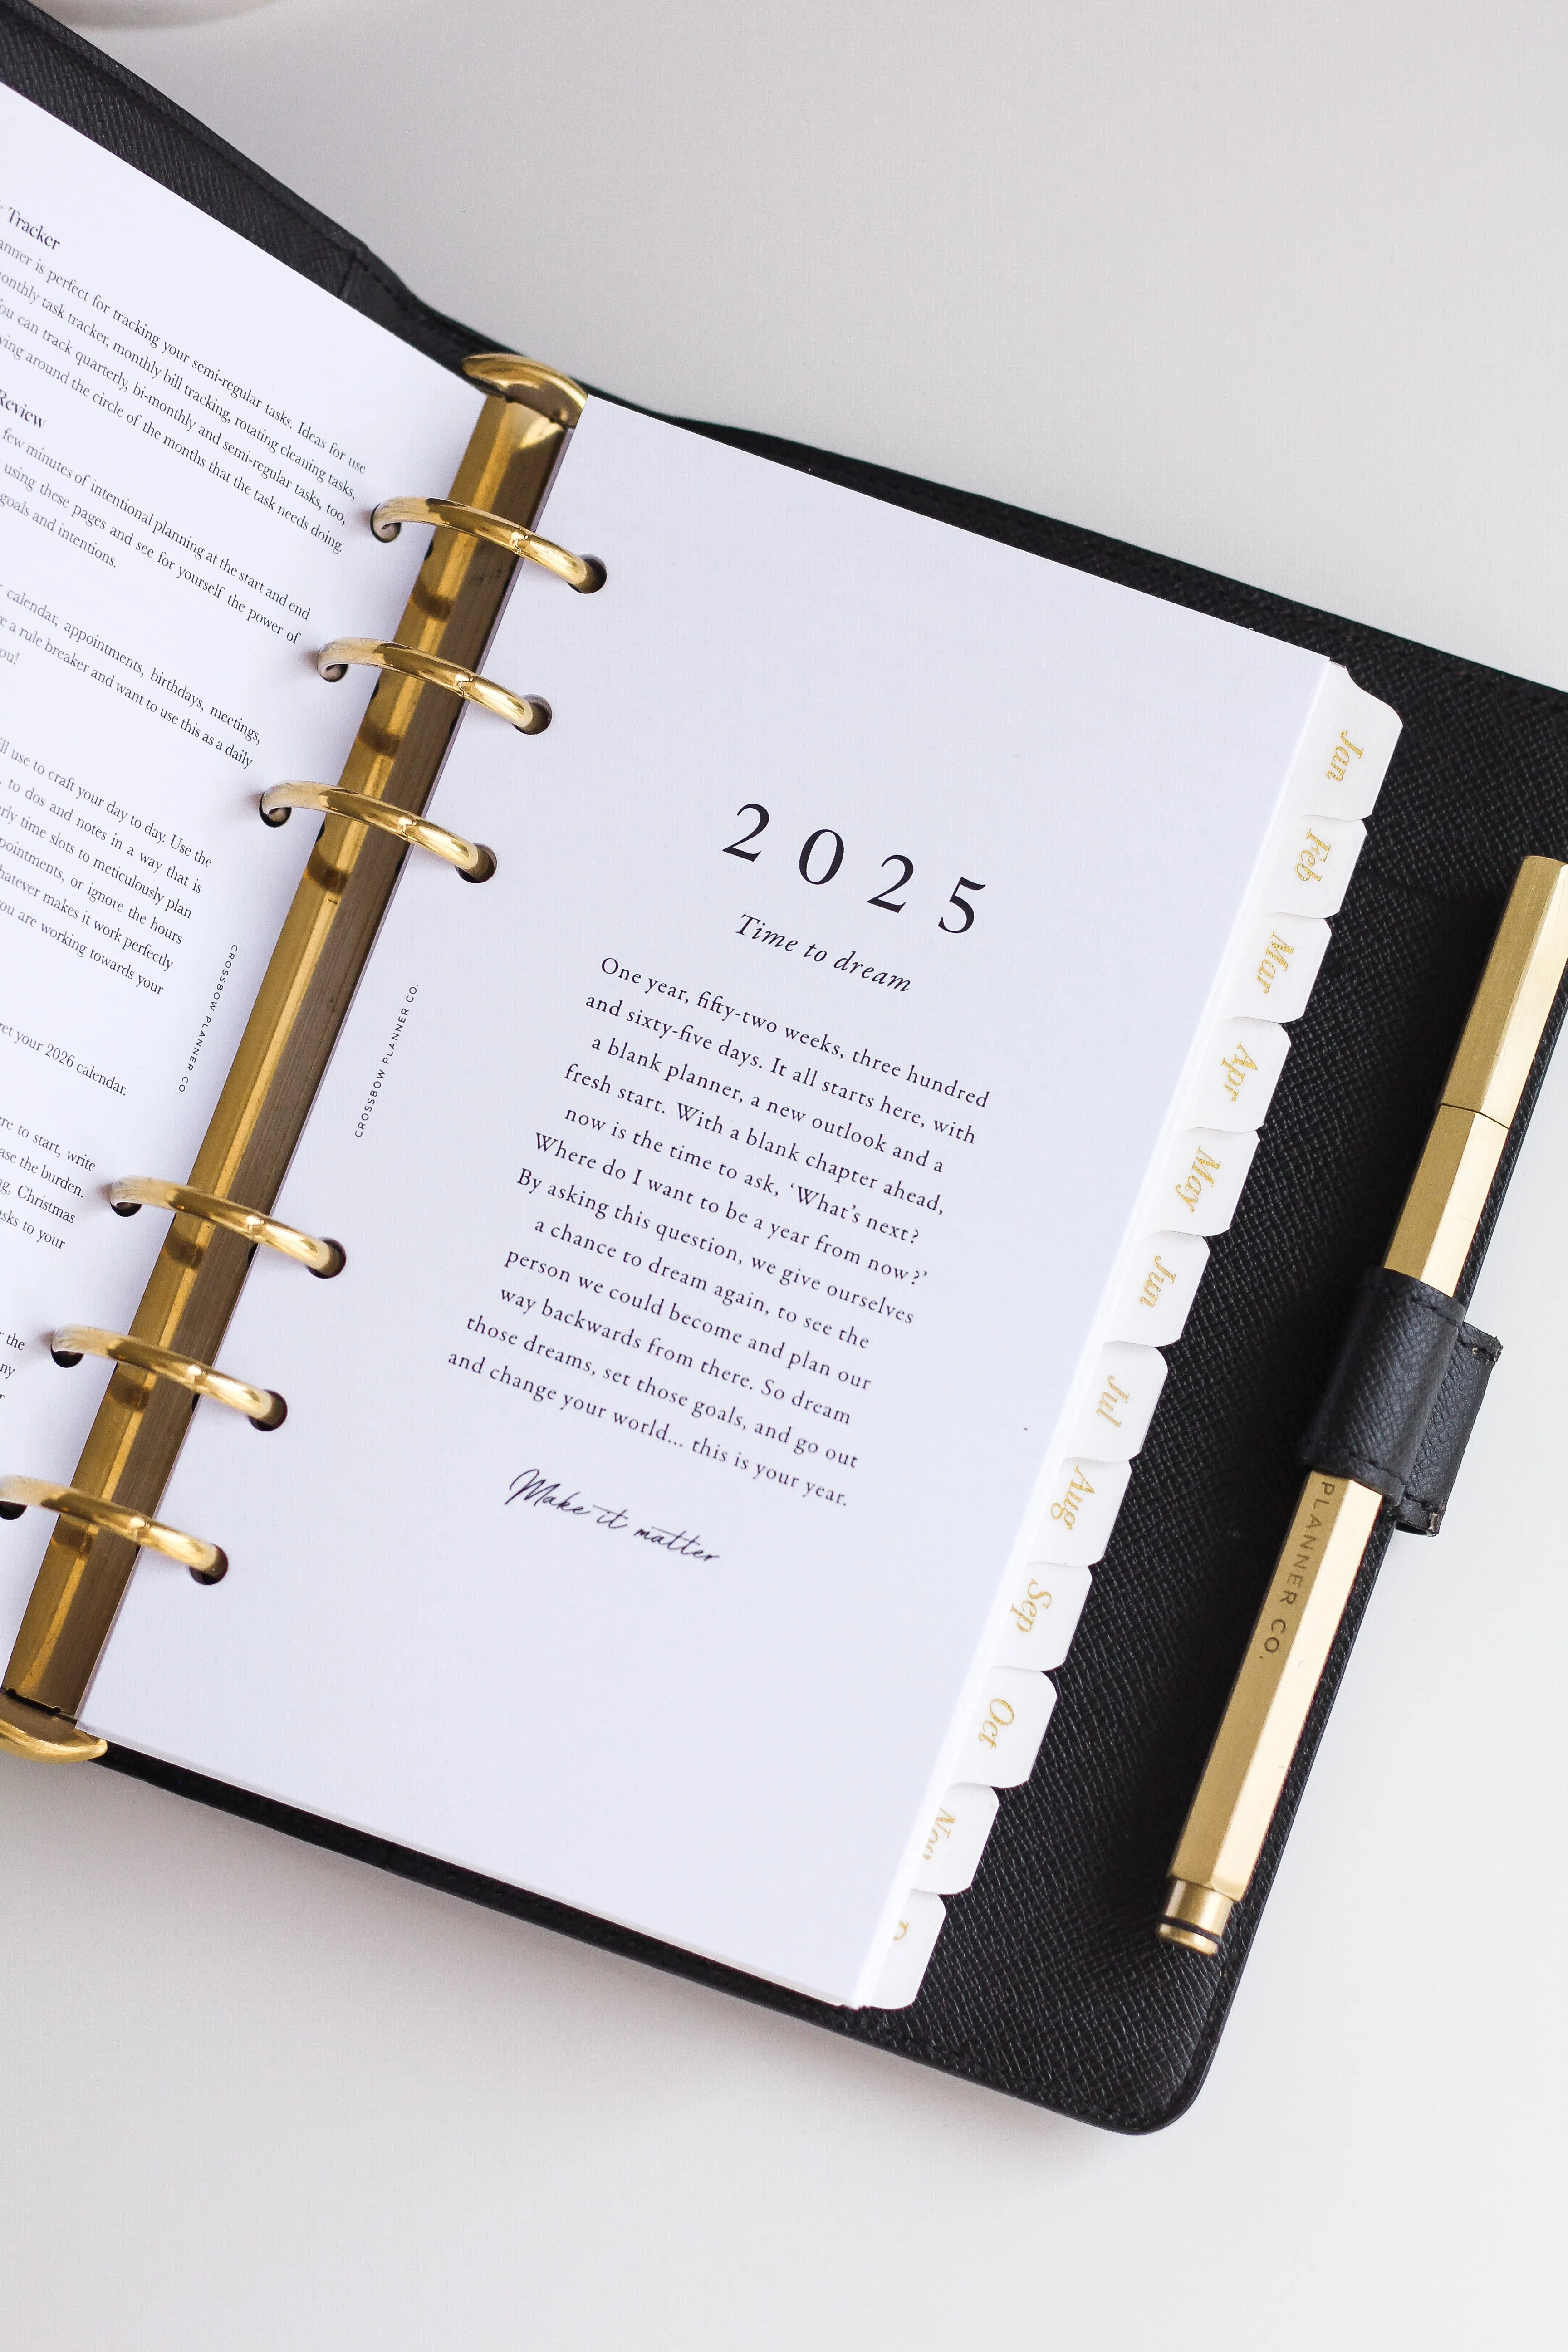 Tracker
is perfect for tracking your semi-regular tasks. Ideas for use
monthly task tracker, monthly bill tracking, rotating cleaning tasks,
You can track quarterly, bi-monthly and semi-regular tasks, too,
around the circle of the months that the task needs doing.
Review
few minutes of intentional planning at the start and end
using these pages and see for yourself the power of
goals and intentions.
calendar, appointments, birthdays, meetings,
a rule breaker and want to use this as a daily
you!
use to craft your day to day. Use the
to dos and notes in a way that is
time slots to meticulously plan
or ignore the hours
makes it work perfectly
you are working towards your
your 2026 calendar.
to start, write
the burden.
Christmas
to your
the
CROSSBOW PLANNER CO.
CROSSBOW PLANNER CO.
2025
Time to dream
One year, fifty-two weeks, three hundred
and sixty-five days. It all starts here, with
a blank planner, a new outlook and a
fresh start. With a blank chapter ahead,
now is the time to ask, ‘What’s next?
Where do I want to be a year from now?’
By asking this question, we give ourselves
a chance to dream again, to see the
person we could become and plan our
way backwards from there. So dream
those dreams, set those goals, and go out
and change your world... this is your year.
Make it matter
Jan
Feb
Mar
Apr
May
Jun
Jul
Aug
Sep
Oct
Nov
PLANNER CO.